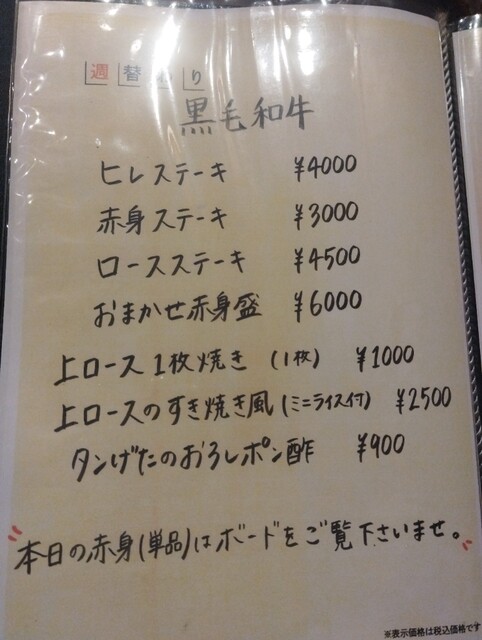 週替わり
黒毛和牛
ヒレステーキ ¥4000
赤身ステーキ ¥3000
ロースステーキ ¥4500
おまかせ赤身盛 ¥6000
上ロース1枚焼き (1枚) ¥1000
上ロースのすき焼き風(ミニライス付) ¥2500
タンげたのおろしポン酢 ¥900
本日の赤身(単品)はボードをご覧下さいませ。
※表示価格は税込価格です